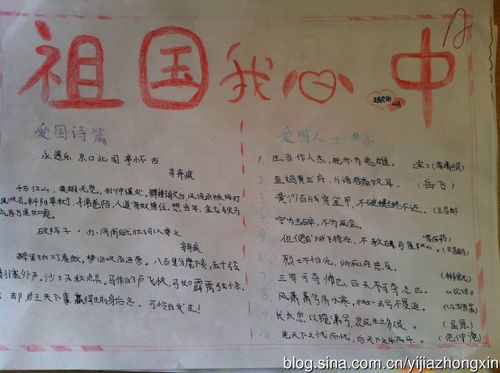 祖国我心中
爱国诗篇
永遇乐 京口北固亭怀古
辛弃疾
千古江山,英雄无觅,孙仲谋处。舞榭歌台,风流总被雨打
风吹去。斜阳草树,寻常巷陌,人道寄奴曾住。想当年,金戈铁马
气吞万里如虎。
破阵子·
辛弃疾
醉里挑灯看剑,梦回吹角连营。八百里分麾下炙,五十弦
翻塞外声,沙场秋点兵。马作的卢飞快,弓如霹雳弦惊。
却君王天下事,赢得生前身后名。可怜白发生!
爱国人士
1. 生当作人杰,死亦为鬼雄。 宋(李清照)
2. 直捣黄龙府,与诸君痛饮耳。 (岳飞)
3. 黄沙百战穿金甲,不破楼兰终不还。(王昌龄)
4. 宁为玉碎,不为瓦全。
5. 但使龙城飞将在,不教胡马度阴山。
6. 烈士不怕死,所死在忠贞。
7. 三军可夺帅也,匹夫不可夺志也。
8. 风萧萧兮易水寒,壮士一去兮不复返。
9. 长太息以掩涕兮,哀民生之多艰。 (屈原)
10. 先天下之忧而忧,后天下之乐而乐。(范仲淹)
blog.sina.com.cn/yijiazhongxin